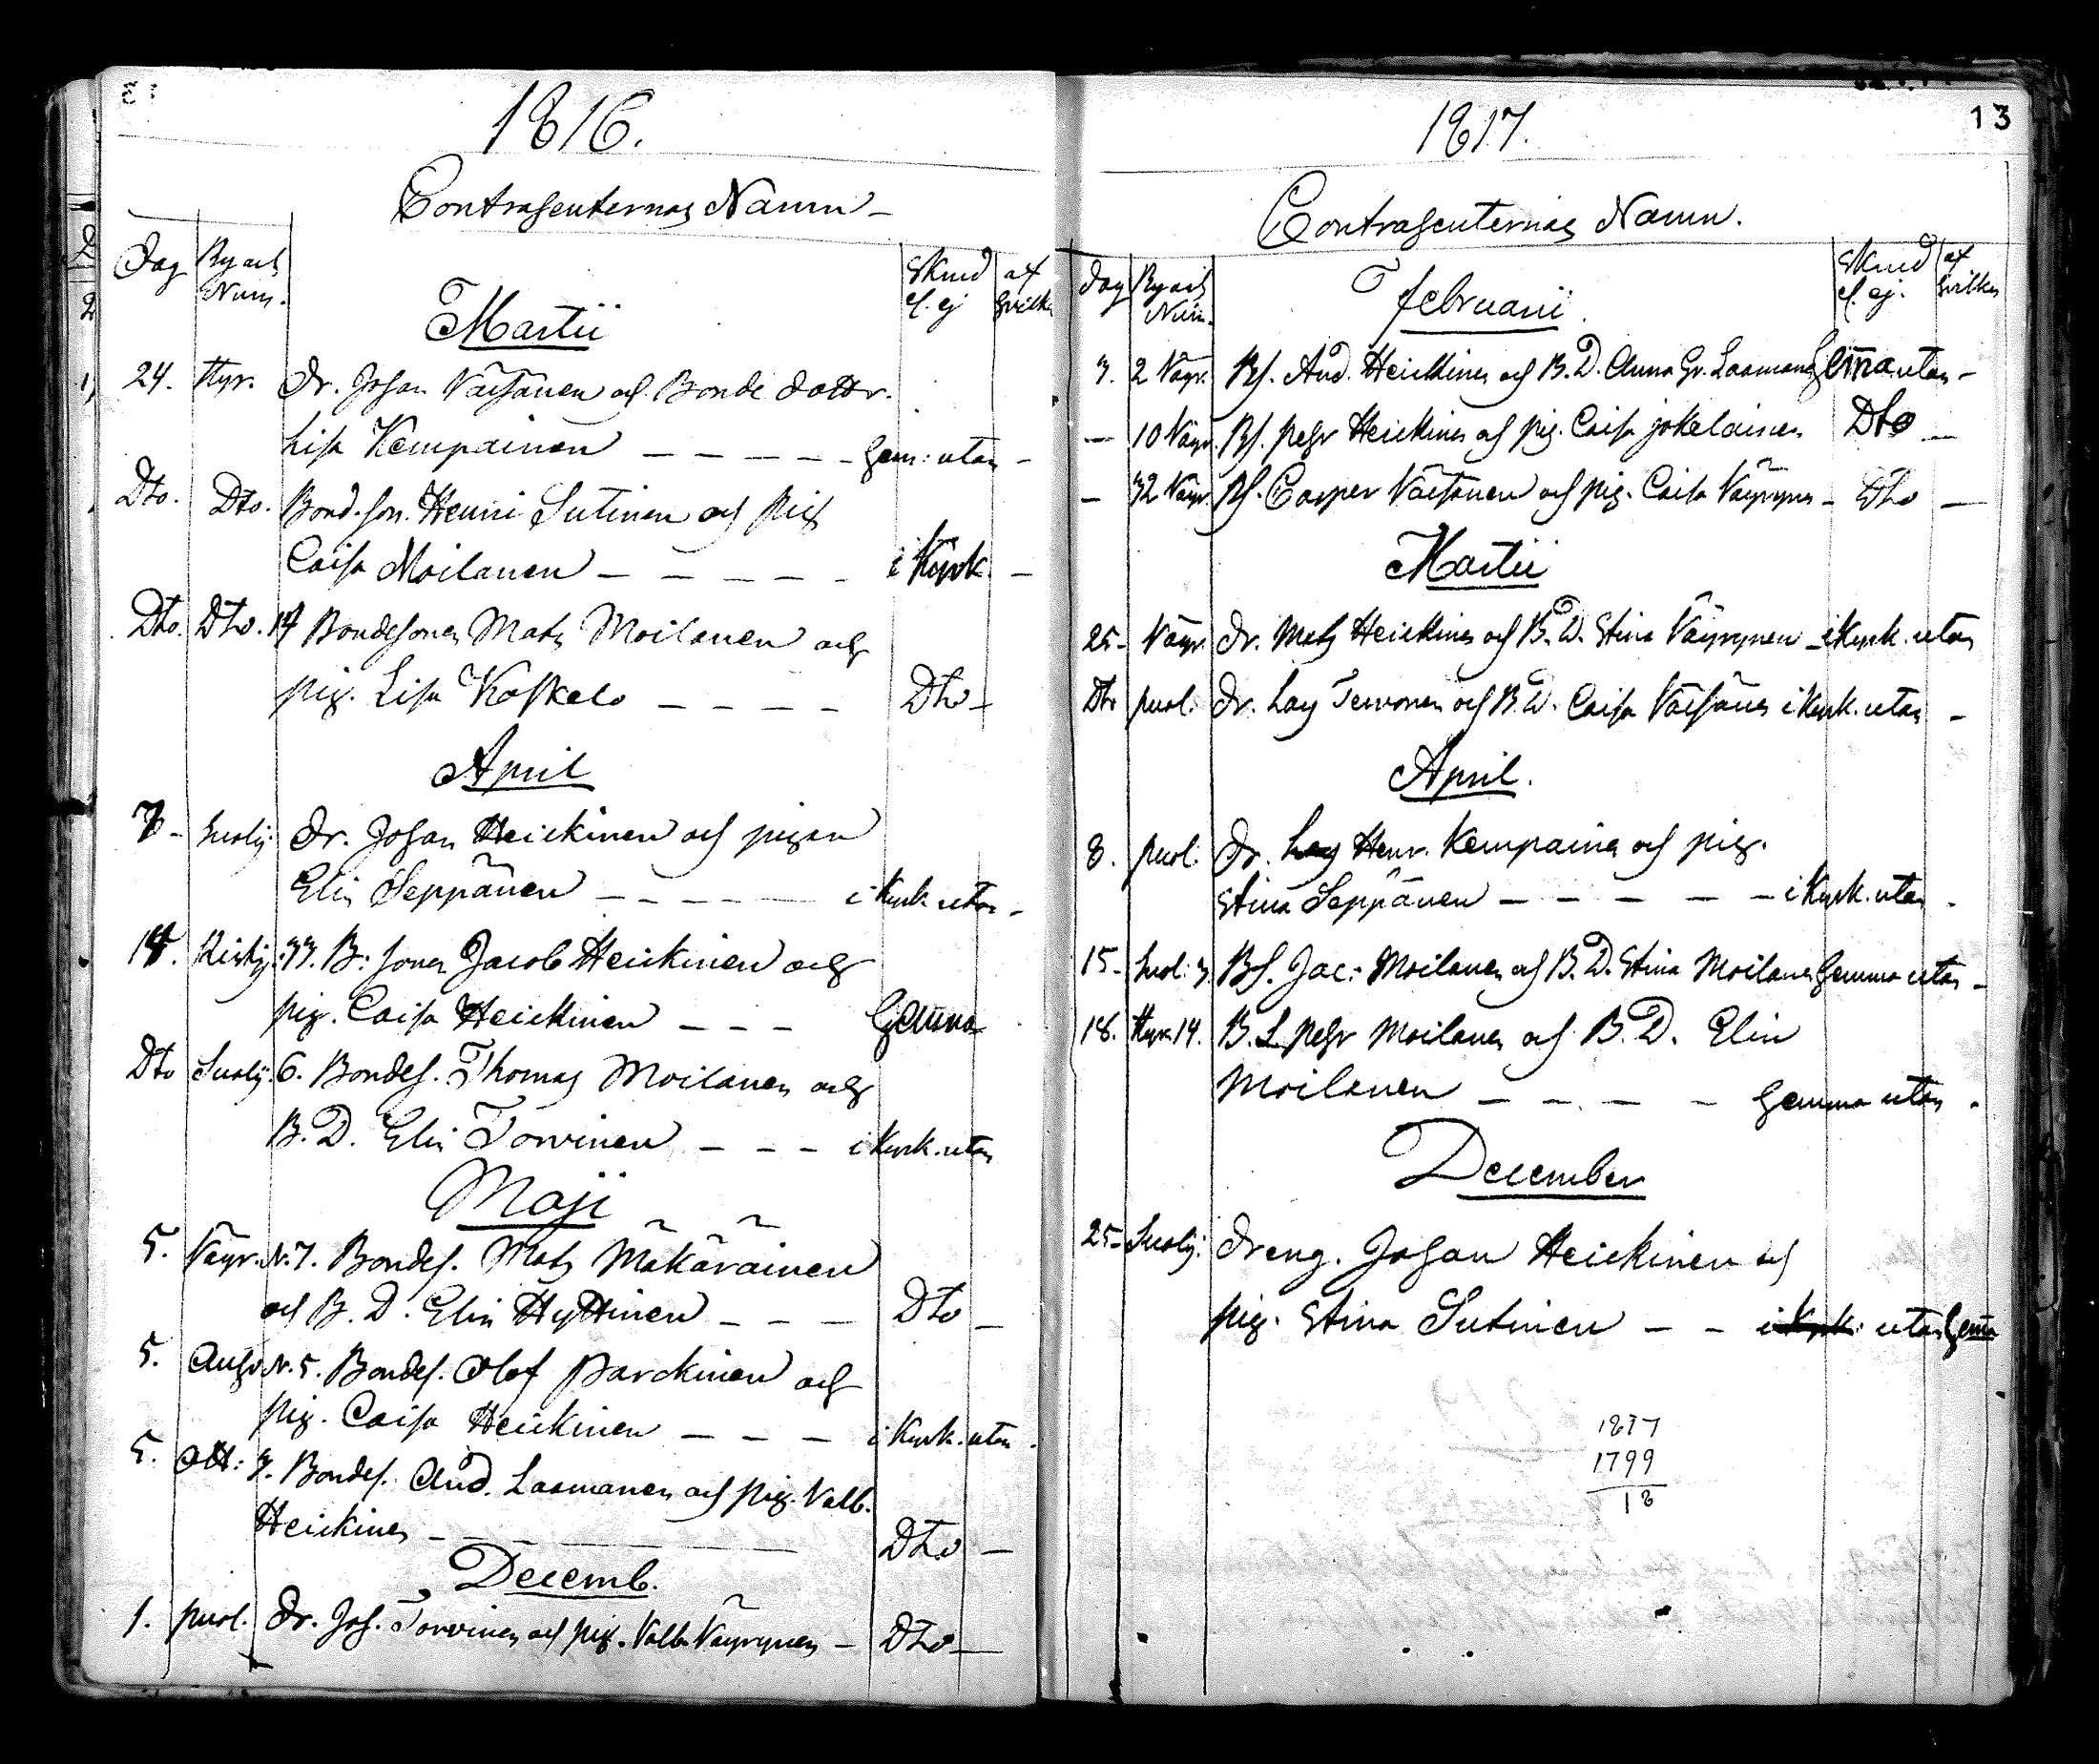 1816.
Contrahenternas Namn
Dag By och Num. Skuld el. ej af hvilke
Martii
24. Hyr. Dr. Johan Väisänen och Bonde dottr.
Lisa Kempainen — — — — Hem: utan —
Dto. Dto. Bond. son. Henric Sutinen och Pig
Caisa Moilanen — — — — — i Kyrk. —
Dto. Dto. 14 Bondesonen Mats Moilanen och
pig. Lisa Koskelo — — — — Dto —
April
7 - Suolij. Dr. Johan Heickinen och pigan
Elin Seppänen — — — — i Kyrk. utan -
14. Ristij: 33. B: sonen Jacob Heickinen och
pig. Caisa Heickinen — — — Hemma
Dto Suolij. 6. Bondes. Thomas Moilanen och
B. D. Elin Torvinen — — — i Kyrk. utan
Maji
5. Väyr. N. 7. Bondes. Mats Mäkäräinen
och B. D. Elin Hyttinen — — — Dto —
5. Auho N. 5. Bondes. Olof Parckinen och
pig. Caisa Heickinen — — — i Kyrk. utan.
5. Ott: 3. Bondes. And. Laamanen och pig. Valb.
Heickinen — — Dto —
Decemb.
1. puol. Dr. Joh. Torvinen och pig. Valb. Väyrynen — Dto —
1817.
13
Contrahenternas Namn.
Dag By och Num. Skuld el. ej. af hvilken
Februarii
3. 2 Väyr. Bs. And. Heickinen och B. D. Anna Gr. Laamanen Hemma utan —
— 10 Väyr. Bs. Pehr Heickinen och pig. Caisa Jokelainen Dto —
— 32 Väyr. Bs. Casper Väisänen och pig. Caisa Väyrynen — Dto —
Martii
25 - Väyr. Dr. Mats Heickinen och B. D. Stina Väyrynen — i Kyrk. utan
Dto puol. Dr. Lars Tervonen och B. D. Caisa Väisänen i Kyrk. utan —
April.
8. puol. Dr. Lars Henr. Kempainen och pig.
Stina Seppänen — — — — — i Kyrk. utan -
15 - Suol: 3. Bs. Jac: Moilanen och B. D. Stina Moilanen Hemma utan -
18. Hyr. 14. B. S. Pehr Moilanen och B. D. Elin
Moilanen — — — — Hemma utan.
December
25 - Suolij: Dreng. Johan Heickinen och
pig. Stina Sutinen — — i Kyrk: utan Hemma
1817
1799
18